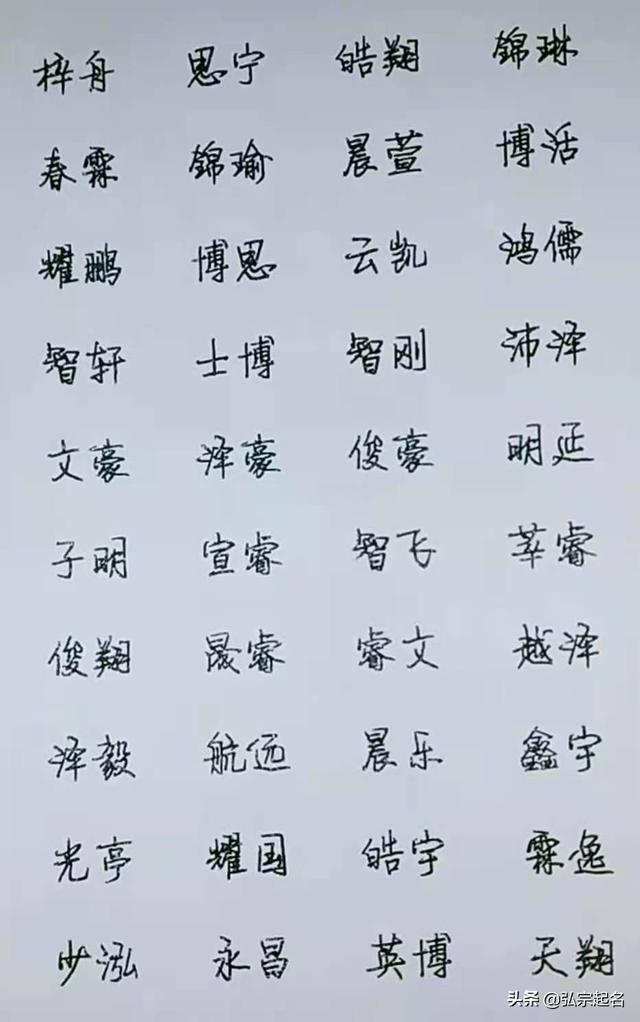 梓舟 思宁 皓翔 锦琳
春霖 锦瑜 晨萱 博活
耀鹏 博思 云凯 鸿儒
智轩 士博 智刚 沛泽
文豪 泽豪 俊豪 明延
子明 宣睿 智飞 莘睿
俊翔 晟睿 睿文 越泽
泽毅 航远 晨乐 鑫宇
光亭 耀国 皓宇 霖逸
少泓 永昌 英博 天翔
头条 @弘宗起名